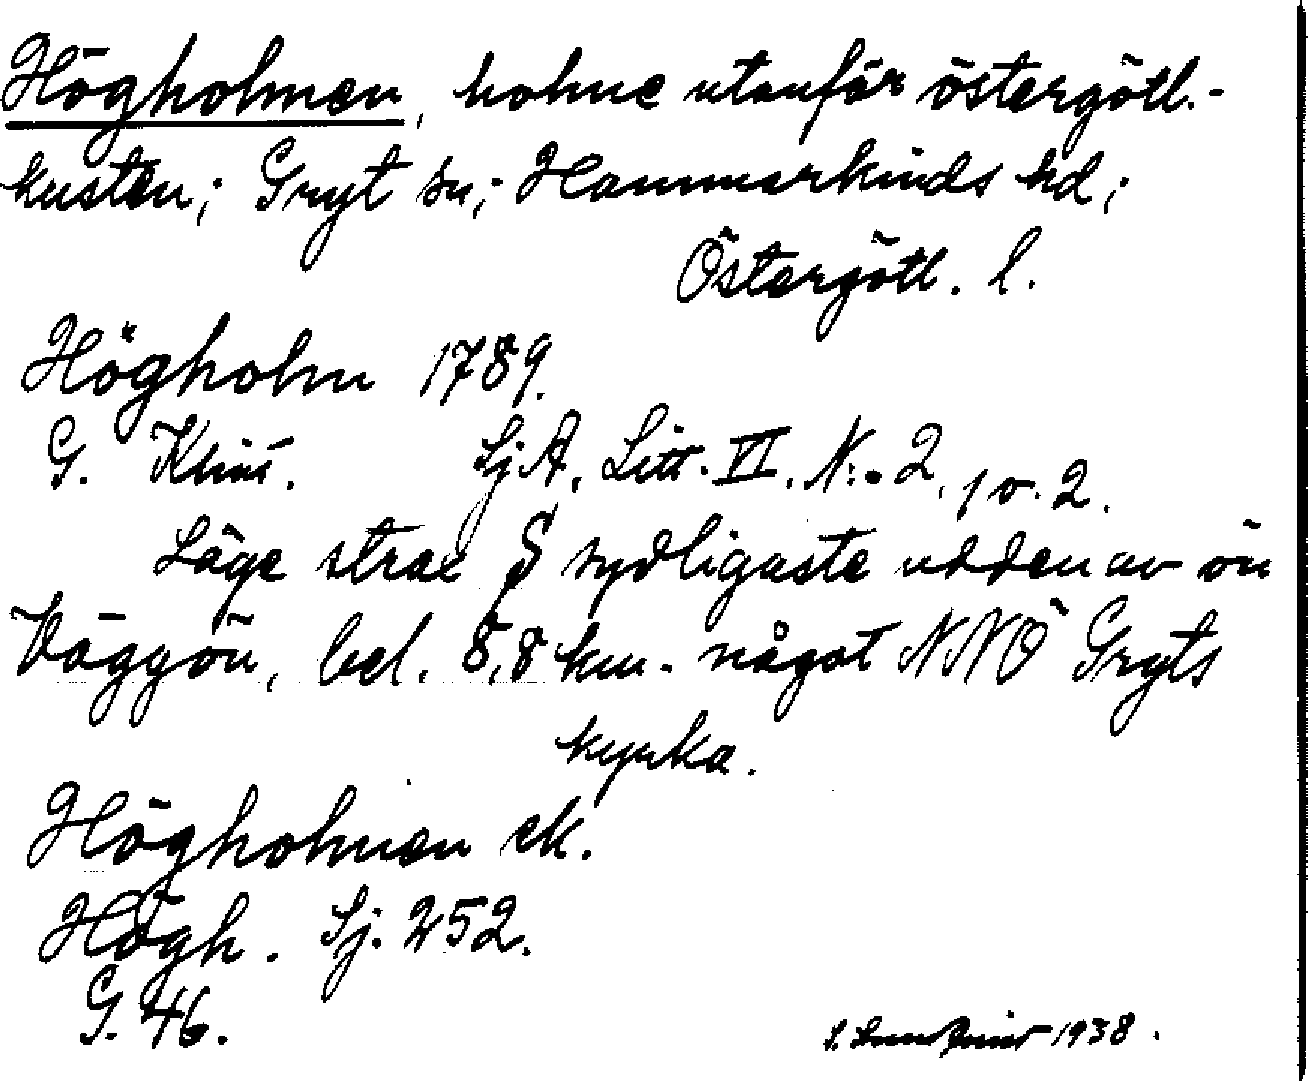 Högholmen, holme utanför östergötl.-
kusten; Gryt sn; Hammarkinds hd;
Östergötl. l.
Högholm 1789.
G. Klint. SjA. Litt. VI. N:o 2, 1 o. 2.
Läge strax S sydligaste udden av ön
Väggön, bel. 8,8 km. något NNÖ Gryts
kyrka.
Högholmen ek.
Högh. Sj. 252.
G. 46.
1938.